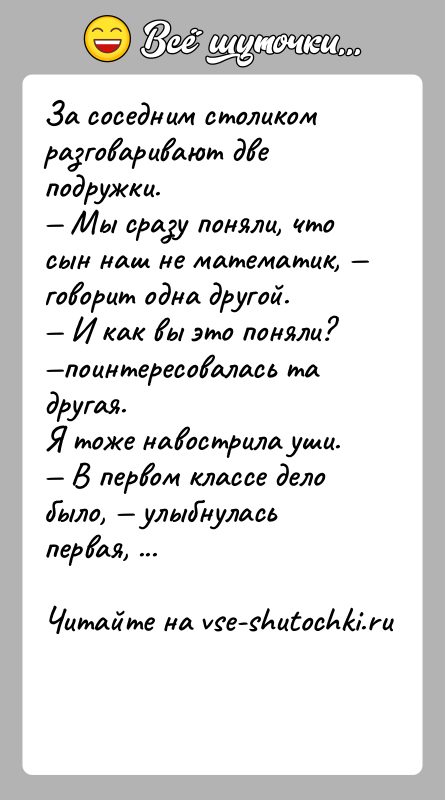 Всё шуточки...
За соседним столиком
разговаривают две
подружки.
— Мы сразу поняли, что
сын наш не математик, —
говорит одна другой.
— И как вы это поняли?
—поинтересовалась та
другая.
Я тоже навострила уши.
— В первом классе дело
было, — улыбнулась
первая, ...
Читайте на vse-shutochki.ru